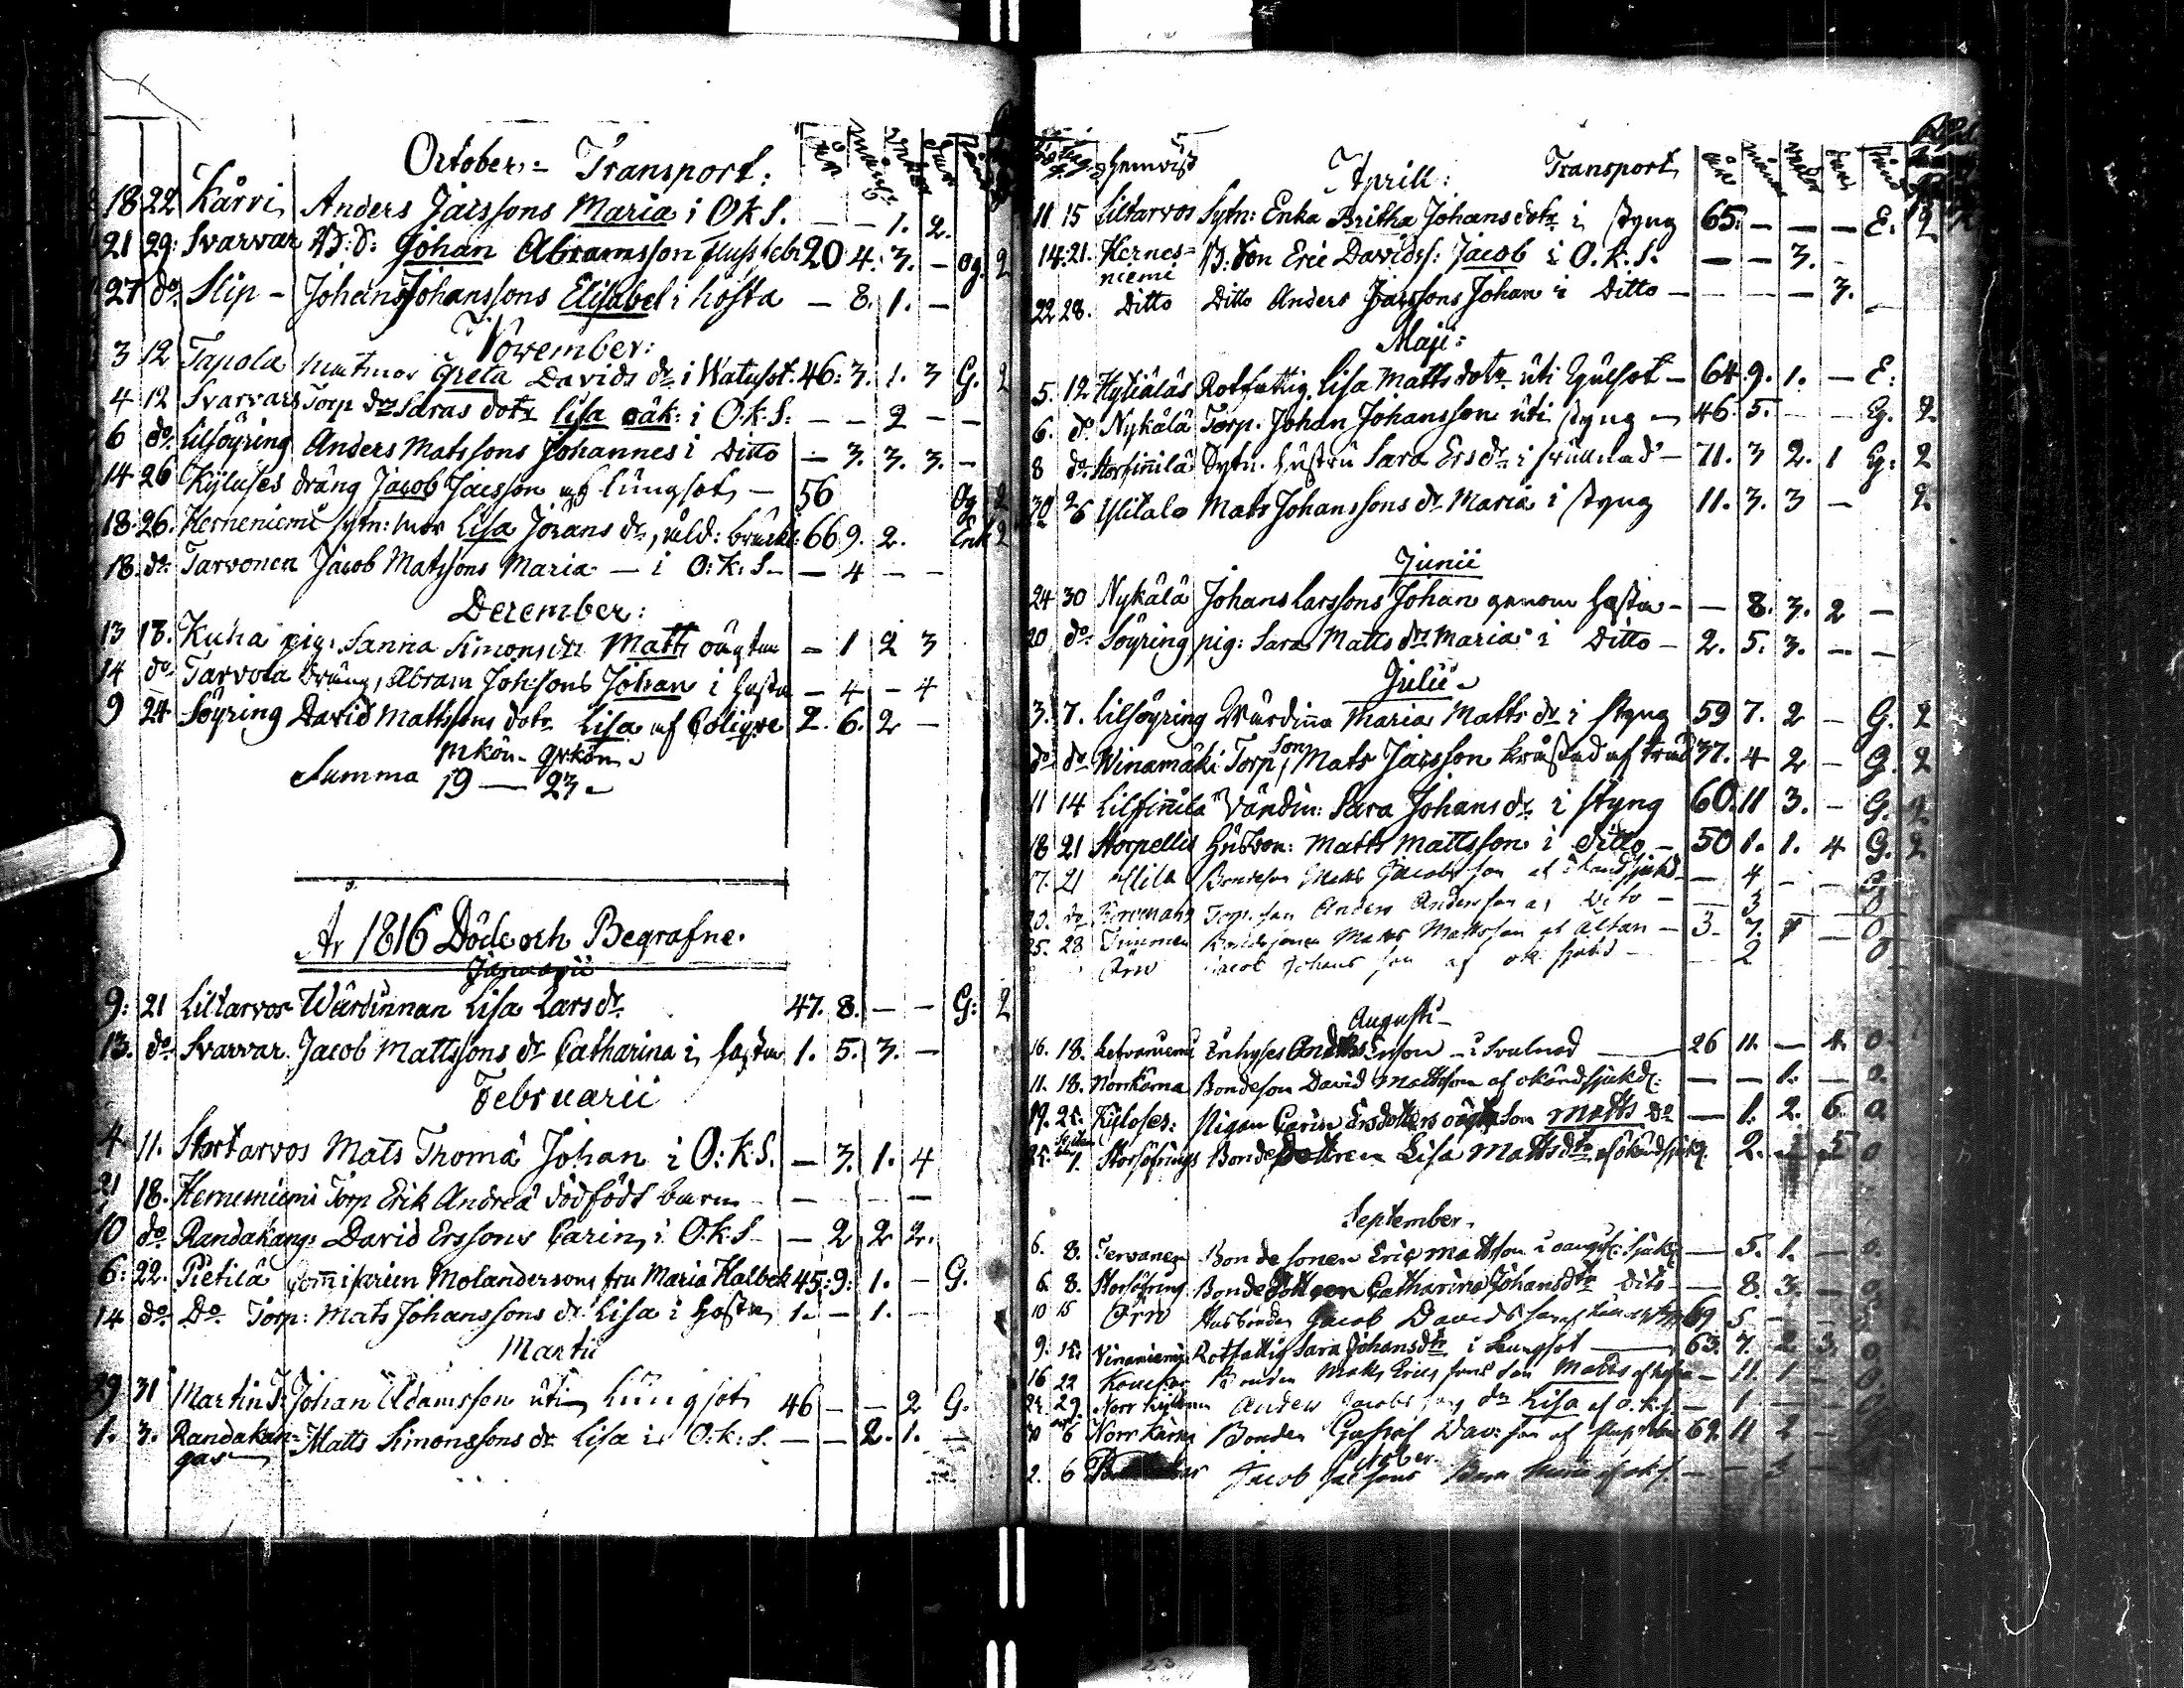 October:= Transport:
18 22 Kårvi Anders Jacssons Maria i OkS. — — 1. 2.
21 29: Svarvar Johan Abramsson 20 4. 3. — og. 2
27 do Slip - Johans Johanssons Elisabet i hosta — 8. 1. —
November:
3 12 Tapola Greta Davids dr i 46: 3. 1. 3 G. 2
4 12 Svarvars Torp drs Saras dotr Lisa oäk: i O.k.S: — — 2 — —
6 do Lilsöyring Anders Matssons Johannes i Ditto — 3. 3. 3. —
14 26 Kyluses dräng Jacob Jacsson af lungsot — 56 Og 2
18. 26. Herneniemi Lisa Johans dr, 66 9. 2. Enk 2
18. do Tarvonen Jacob Matssons Maria — i O:k:S — 4 — —
December:
13 18. Kuha pig: Sanna Simonsdrs Matts oägta — 1 2 3
14 do Tarvola dräng, Abram Johssons Johan i hosta — 4 — 4
9 24 Söyring David Mattssons dotr Lisa af Colique 2. 6. 2 —
mkön - qvkön
Summa 19 — 23
År 1816 Döde och Begrafne.
Januarii
9: 21 Liltarvos Wärdinnan Lisa Lars dr 47. 8. — — G: 2
13. do Svarvar. Jacob Mattssons dr Catharina i hosta 1. 5. 3. —
Februarii
4 11. Stortarvos Mats Thomä Johan i O:k:S. — 3. 1. 4
21 18. Herneniemi Torp Erik Andreä dödfödt barn — — —
10 do Randakang: David Erssons Carin, i O.k.S — 2 2 2.
6: 22. Pietilä Molandersons fru Maria Kalbek 45: 9: 1. — G.
14 do Do Torp: Mats Johanssons dr Lisa i hosta 1. — 1. —
Martii
29 31 Martin d: Johan Adamsson uti lungsot 46 — — 2 G.
1. 3. Randakan= Matts Simonssons dr Lisa i O:k:S. — — 2. 1. —
gas
Hemvist Aprill: Transport
11 15 Liltarvos Sytn: Enka Britha Johans dotr i styng 65. — — — E. 2
14. 21. Hernes= B: Son Eric Davids: Jacob i O.k.S. — — 3. —
niemi
22 28. Ditto Ditto Anders Jacssons Johan i Ditto — — — 3.
Maji:
5. 12 Kytiäläs Rotfattig. Lisa Matts dotr uti Gulsot — 64. 9. 1. — E:
6. do Nykälä Torp. Johan Johansson uti styng — 46. 5. — — G. 2
8 do Storfinnilä Sytn. hustru Sara Ers dr i svullnad — 71. 3 2. 1 G: 2
20 26 Ylitalo Mats Johanssons dr Maria i styng 11. 3. 3 — 2
Junii
24 30 Nykälä Johans Larssons Johan genom hosta — — 8. 3. 2 —
20 do Söyring pig: Sara Matts drs Maria i Ditto — 2. 5. 3. — —
Julii
3. 7. Lilsöyring Wärdinna Maria Matts dr i styng 59 7. 2 — G. 2
do do Winamäki Torp, son Mats Jacsson af träd 37. 4 2 — G. 2
11 14 Lilfinnila Värdin: Sara Johans dr i styng 60. 11 3. — G. 2
18 21 Storpellis Husbon: Matts Mattsson i ditto — 50 1. 1. 4 G. 2
17. 21 Bondeson Matts Jacobsson af okänd sjukd — 4 — — O
do Torp. son Anders Andersson af Dito — 3 — O
25. 28 Matts Mattsson af — 3. 7. — O
Örn Jacob Johans son af ok sjukd — 2 O
Augusti
16. 18. Inhyses Anders Ersson i Svulnad — 26 11. — 4. O
11. 18. Norrkärna Bondeson David Mattsson af okänd sjukd: — — 1. — O.
19. 25. Kyloses: Pigan Carin Ersdotters oägta son Matts do — 1. 2. 6. O
25. 1. Storsöfrings Bondedottren Lisa Matts dtr af okänd sjukd. 2. 5 O
September.
6. 8. Tervanen Bondesonen Eric Mattson i sjukd — 5. 1. — O.
6. 8. Storsöfring Bondedottren Catharina Johansdtr Dito — 8. 3. — O
10 15 Örn Husbonden Jacob Davidsson 69 5
9. 15. Vinaniemi Rotfattig Sara Johansdtr i Lungsot — 63. 7. 2 3. O
16 22 Bonden Matts Erics sons son Matts af hosta — 11. 1 — O
29 Anders Jacobs dr Lisa af o.k.s. — 1 —
6 Norrkärna Bonden 69. 11 2 —
October.
2. 6 Jacob — —